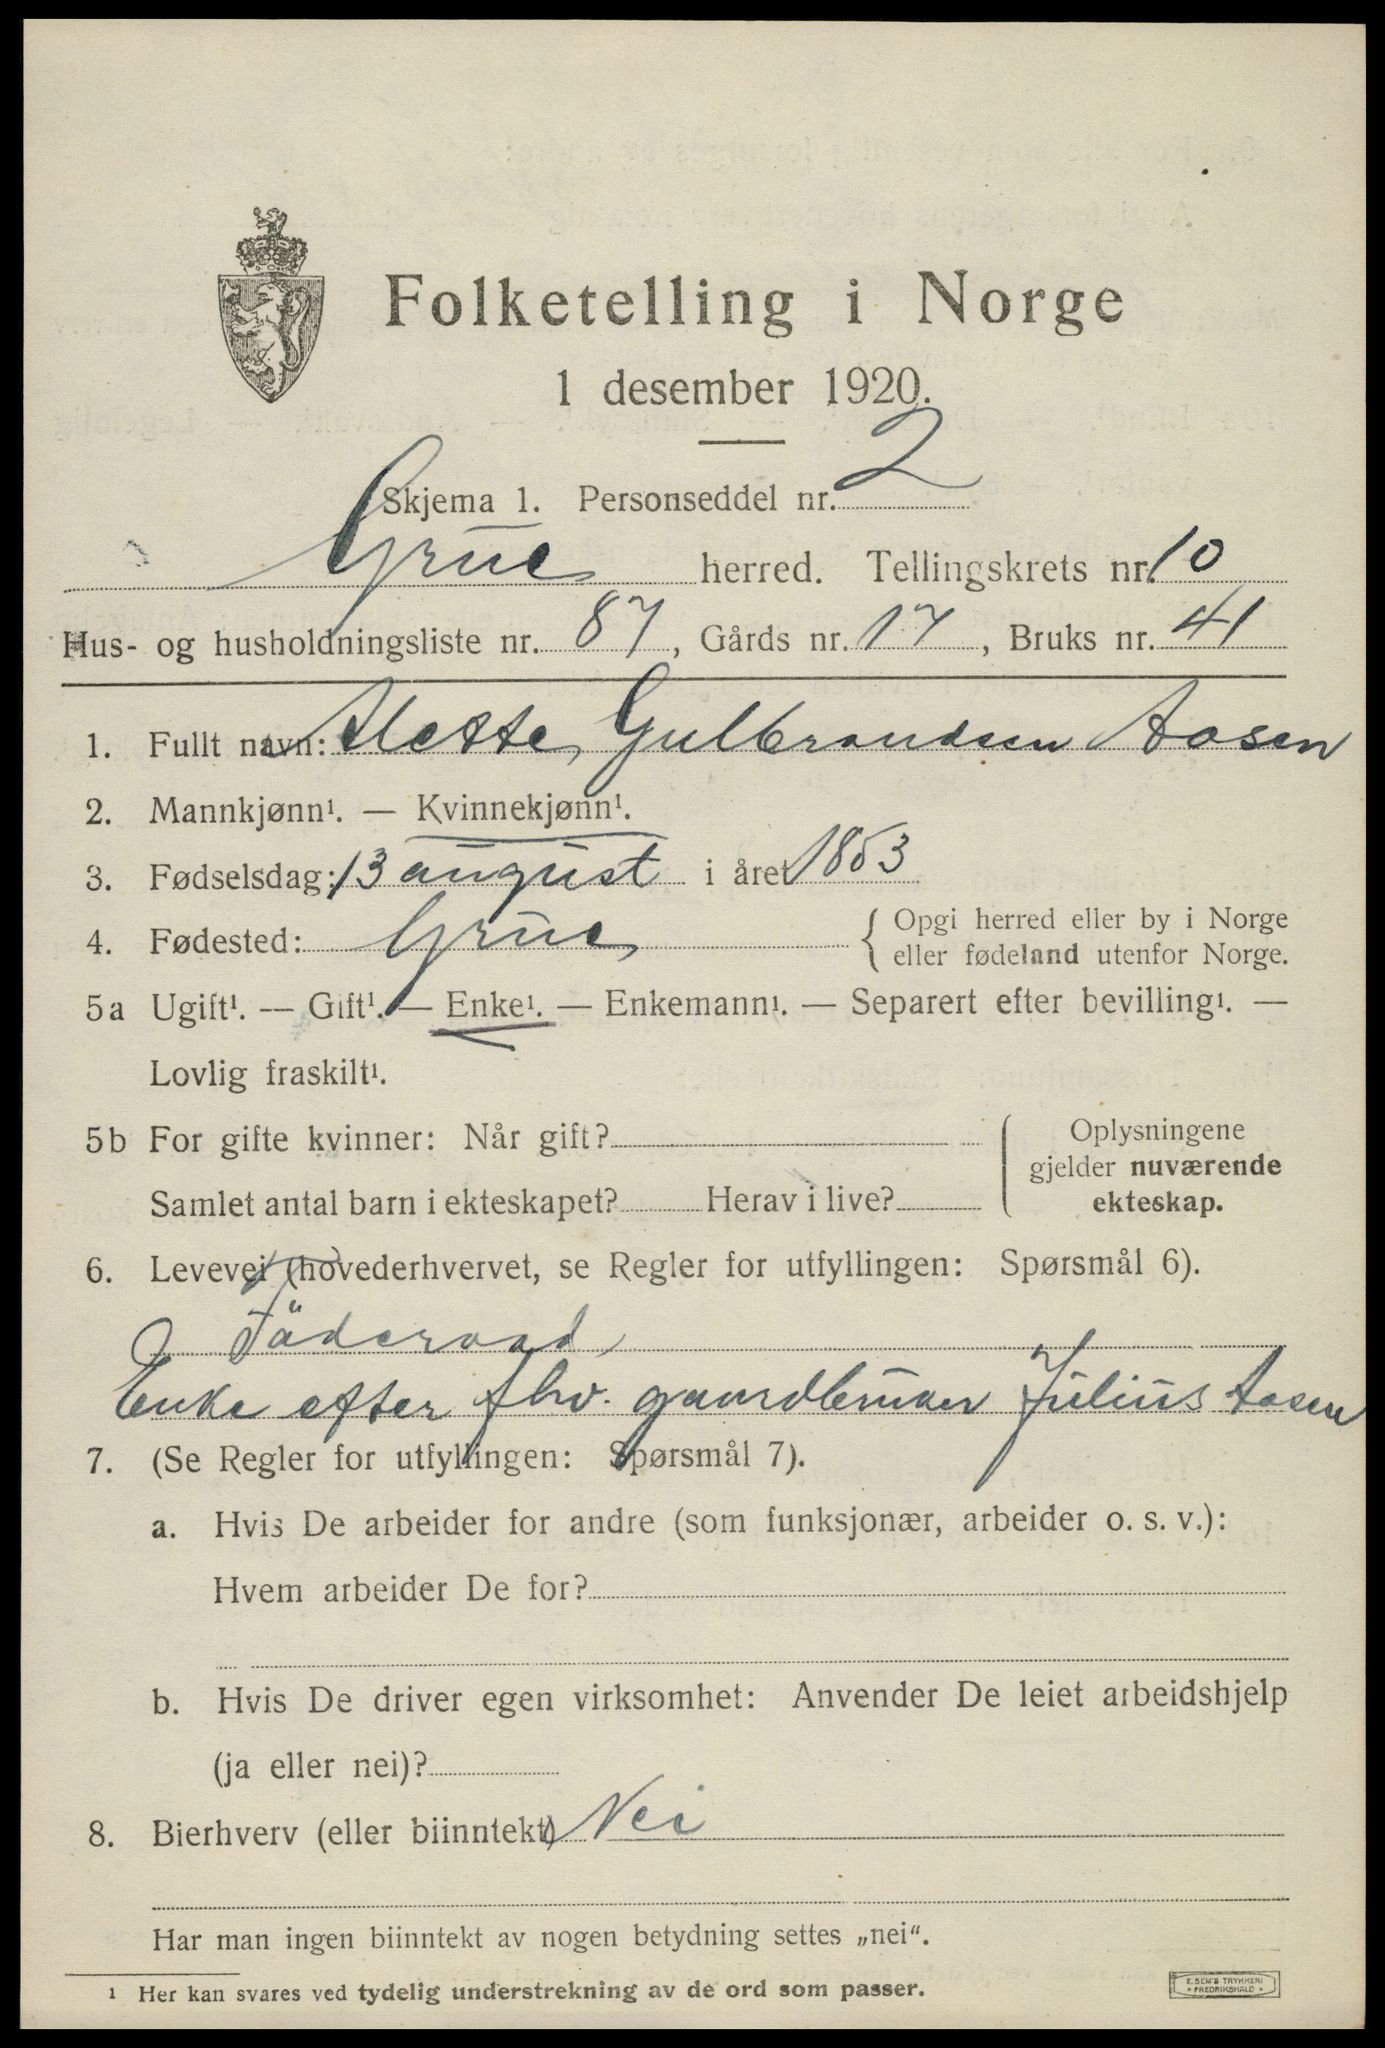 Folketelling i Norge
1 desember 1920.
Skjema 1. Personseddel nr. 2
Grue herred. Tellingskrets nr. 10
Hus- og husholdningsliste nr. 87, Gårds nr. 17, Bruks nr. 41
1. Fullt navn: Alette Gulbrandsen Aasen
2. Mannkjønn¹. — Kvinnekjønn¹.
3. Fødselsdag: 13 august i året 1853
4. Fødested: Grue { Opgi herred eller by i Norge
eller fødeland utenfor Norge.
5a Ugift¹. — Gift¹. — Enke¹. — Enkemann¹. — Separert efter bevilling¹. —
Lovlig fraskilt¹.
5b For gifte kvinner: Når gift?
Samlet antal barn i ekteskapet? Herav i live?
Oplysningene
gjelder nuværende
ekteskap.
6. Levevei (hovederhvervet, se Regler for utfyllingen: Spørsmål 6).
Föderaad,
Enke efter fhv. gaardbruker Julius Aasen
7. (Se Regler for utfyllingen: Spørsmål 7).
a. Hvis De arbeider for andre (som funksjonær, arbeider o. s. v.):
Hvem arbeider De for?
b. Hvis De driver egen virksomhet: Anvender De leiet arbeidshjelp
(ja eller nei)?
8. Bierhverv (eller biinntekt) Nei
Har man ingen biinntekt av nogen betydning settes „nei“.
¹ Her kan svares ved tydelig understrekning av de ord som passer.
E. SEM'S TRYKKERI
FREDRIKSHALD